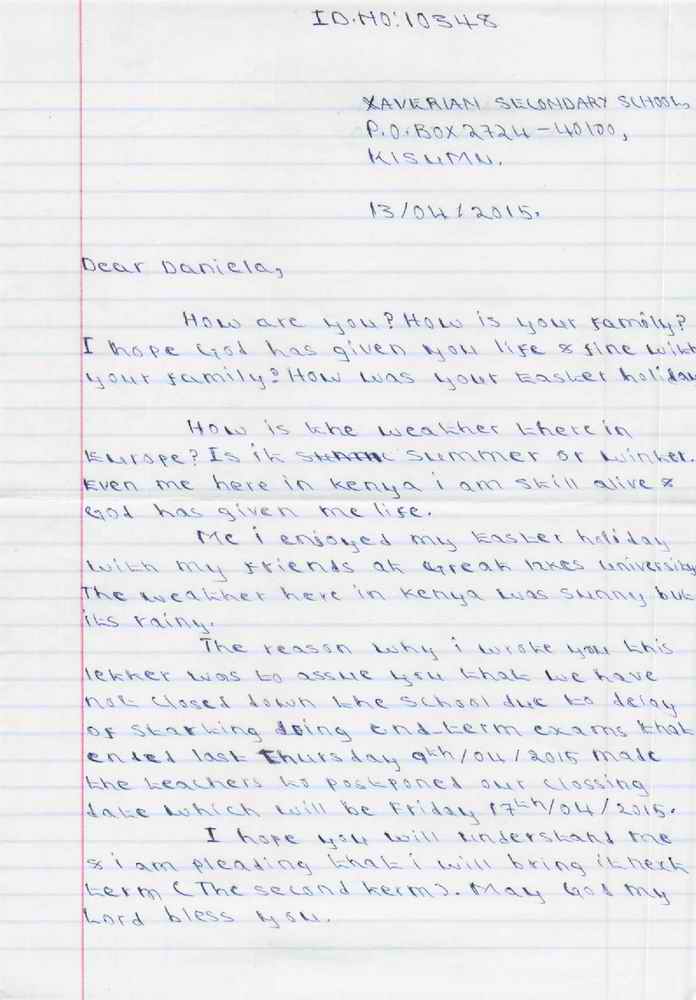 ID.NO:10348
XAVERIAN SECONDARY SCHOOL,
P.O.BOX 2724-40100,
KISUMU.
13/04/2015.
Dear Daniela,
How are you? How is your family?
I hope God has given you life & fine with
your family? How was your Easter holiday
How is the weather there in
Europe? Is it summer or winter.
Even me here in Kenya i am still alive &
God has given me life.
Me i enjoyed my Easter holiday
with my friends at Great lakes university
The weather here in Kenya was sunny but
its rainy.
The reason why i wrote you this
letter was to assue you that we have
not closed down the school due to delay
of starting doing end-term exams that
ended last Thursday 9th/04/2015 made
the teachers to postponed our clossing
date which will be Friday 17th/04/2015.
I hope you will understand me
& i am pleading that i will bring it next
term (The second term). May God my
Lord bless you.